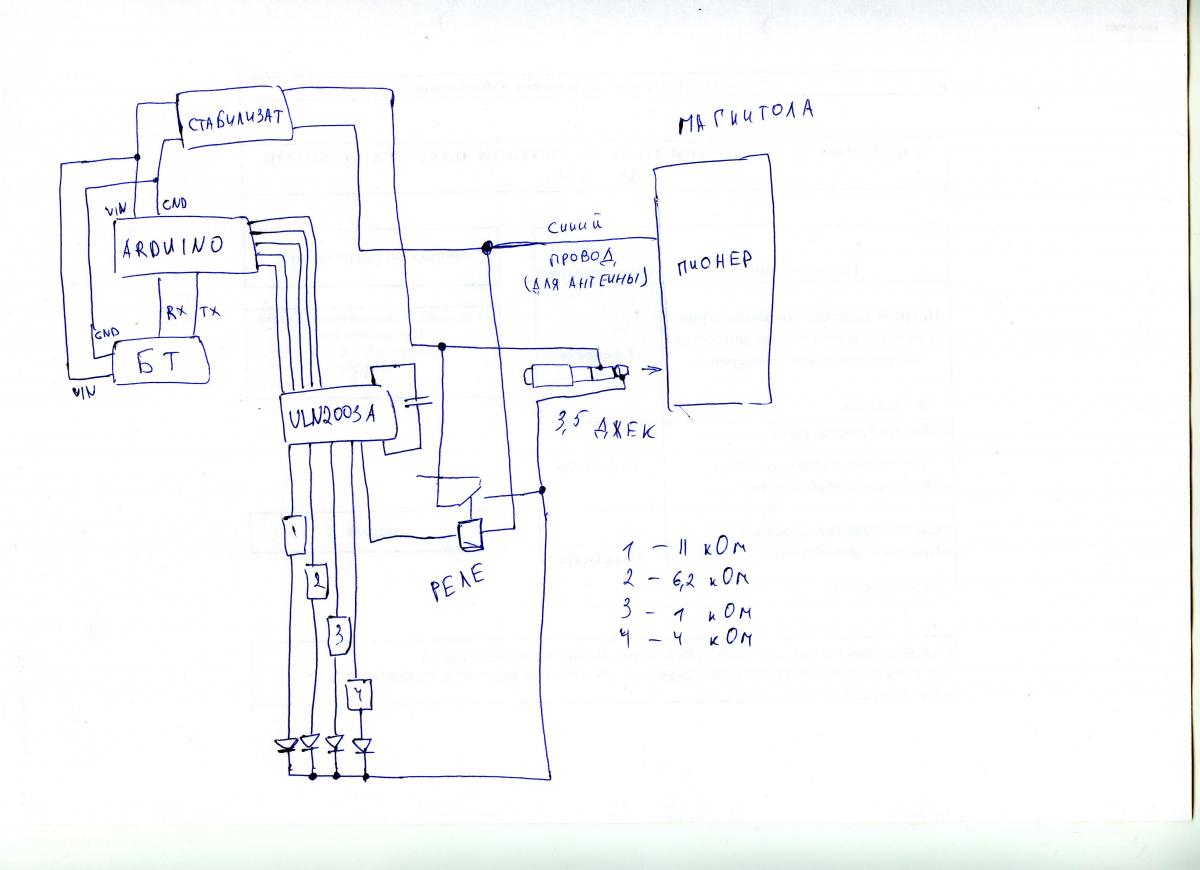 СТАБИЛИЗАТ
МАГНИТОЛА
VIN GND
ARDUINO
СИНИЙ
ПРОВОД
(ДЛЯ АНТЕННЫ)
ПИОНЕР
RX TX
GND
БТ
VIN
ULN2003A
3,5 ДЖЕК
1
2
3
4
РЕЛЕ
1 - 11 кОм
2 - 6,2 кОм
3 - 1 кОм
4 - 4 кОм